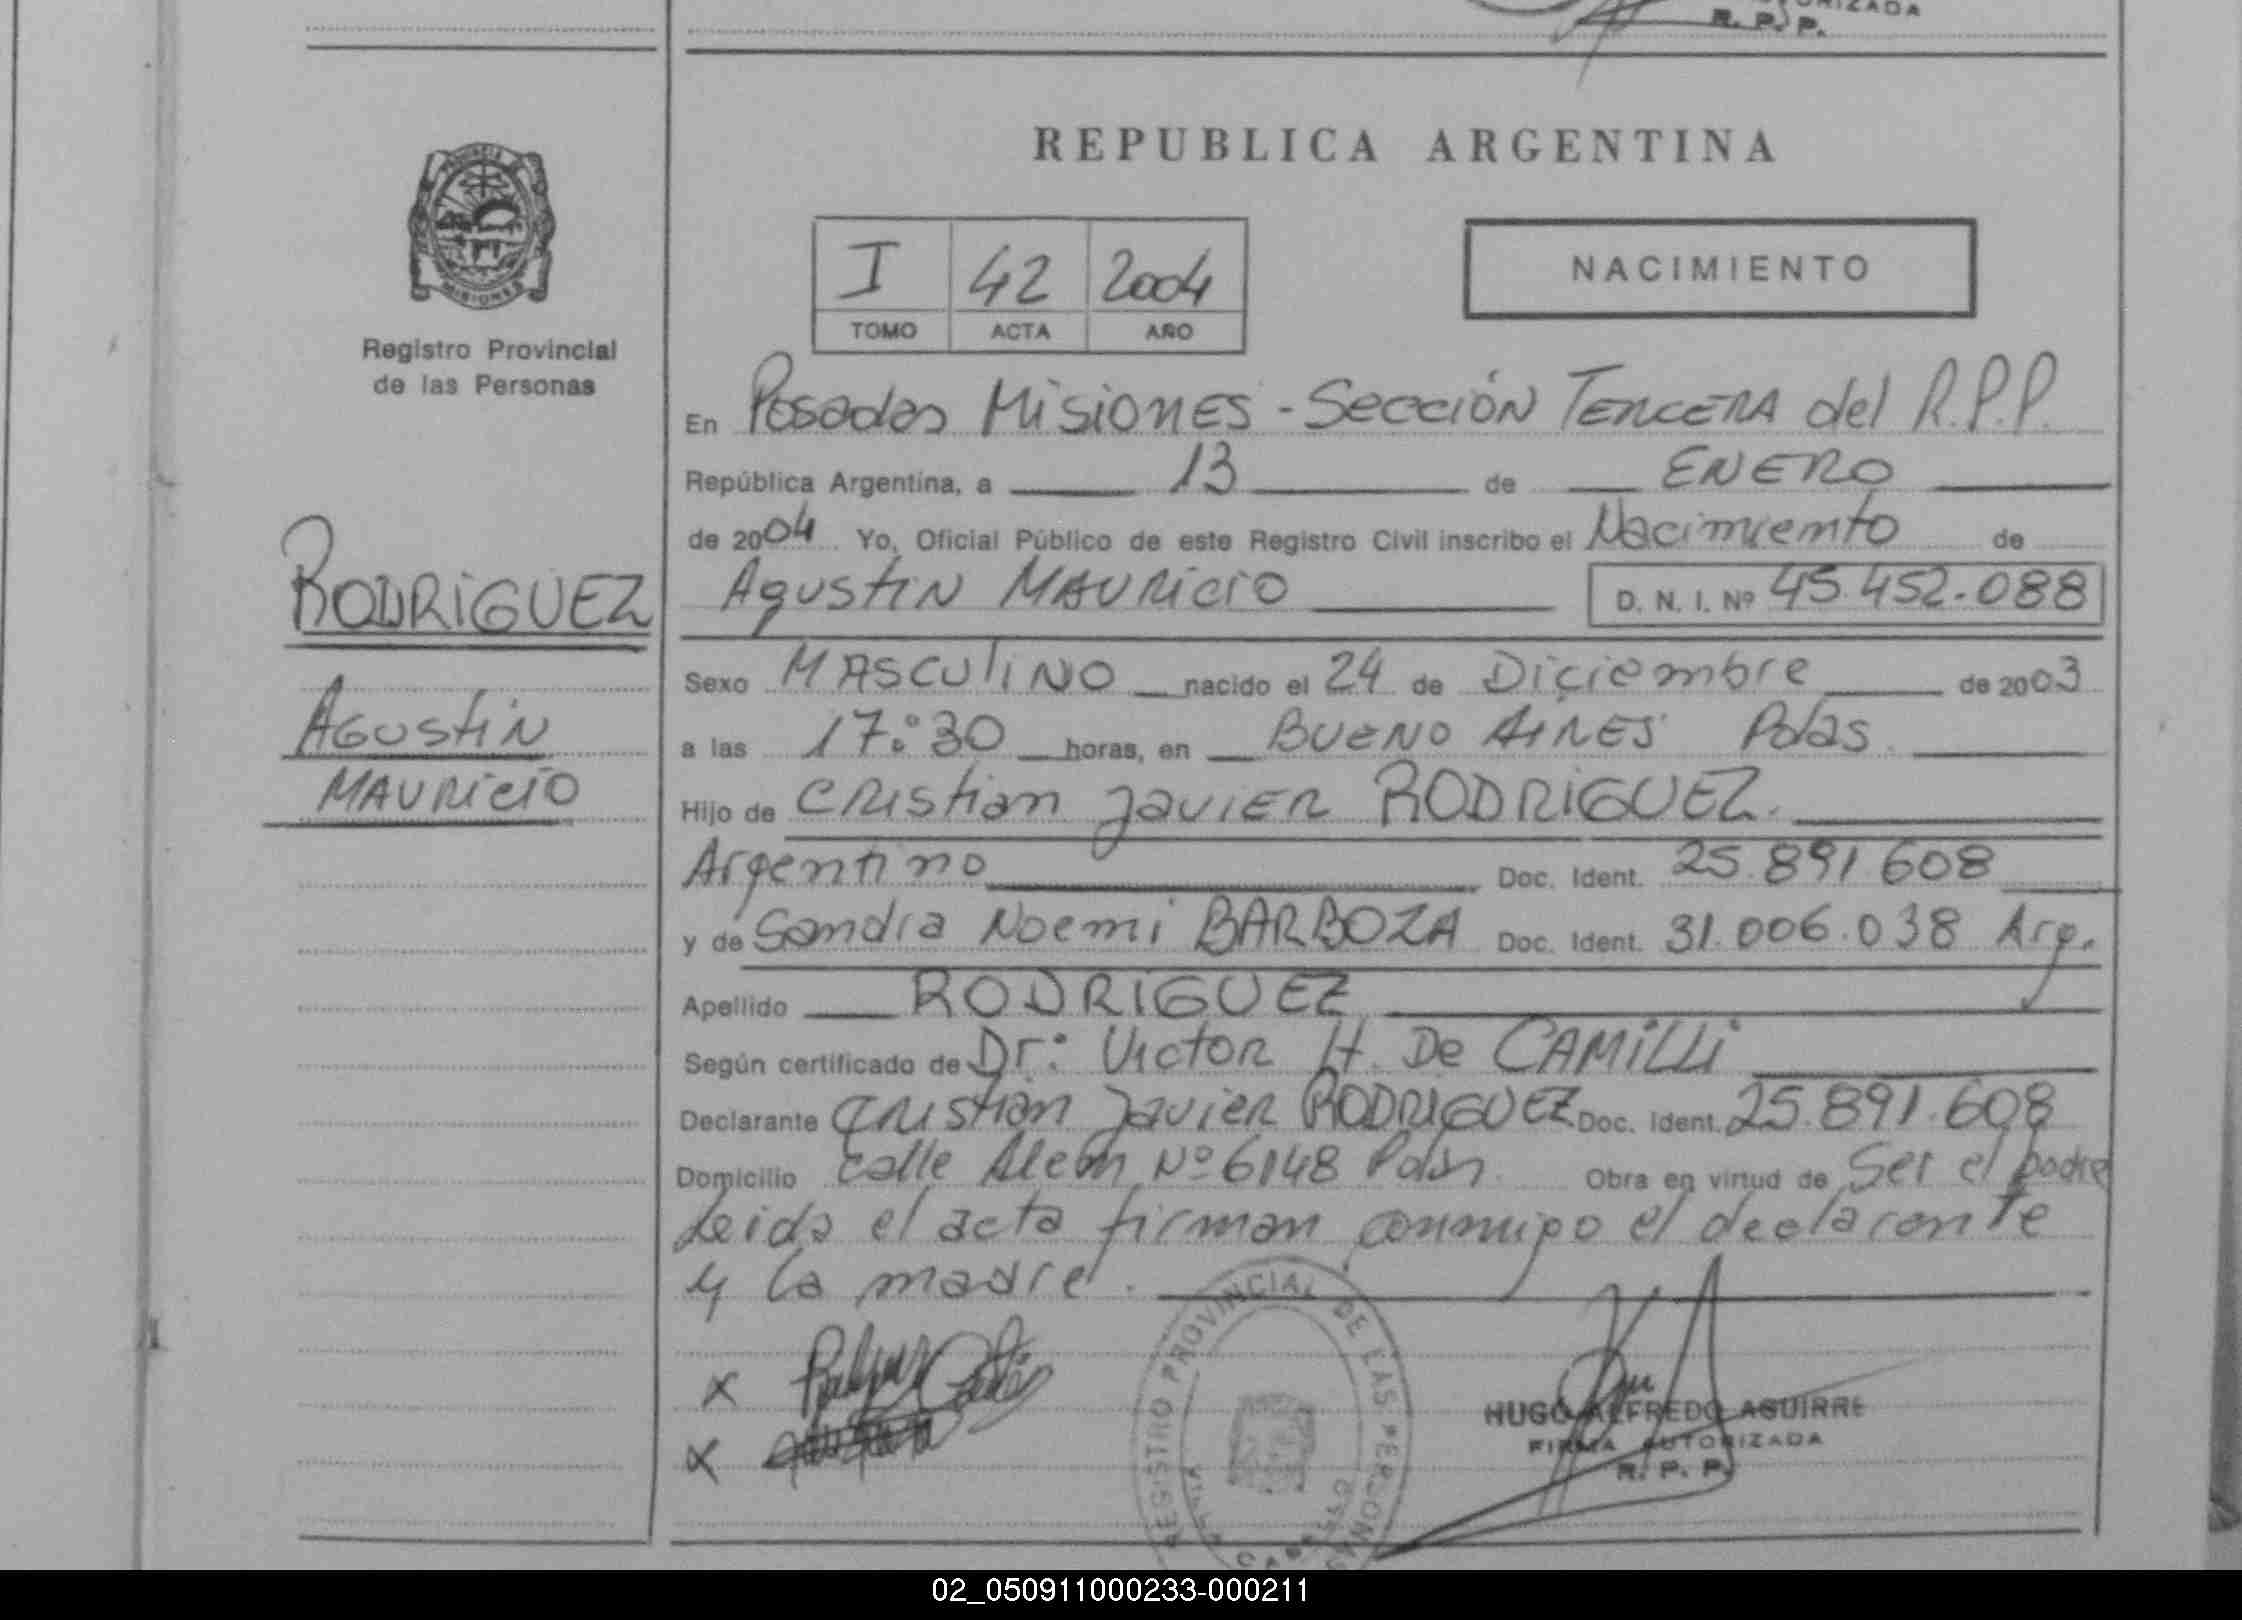 RIZADA
R. P. P.
REPUBLICA ARGENTINA
PROVINCIA DE
MISIONES
Registro Provincial
de las Personas
I 42 2004
TOMO ACTA AÑO
NACIMIENTO
En Posadas Misiones - Sección Tercera del R.P.P.
República Argentina, a 13 de ENERO
de 2004 Yo, Oficial Público de este Registro Civil inscribo el Nacimiento de
Agustin Mauricio D. N. I. Nº 45.452.088
RODRIGUEZ
Agustin
Mauricio
Sexo Masculino nacido el 24 de Diciembre de 2003
a las 17:30 horas, en Bueno Aires Pdas.
Hijo de Cristian Javier RODRIGUEZ.
Argentino Doc. Ident. 25.891.608
y de Sandra Noemi BARBOZA Doc. Ident. 31.006.038 Arg.
Apellido RODRIGUEZ
Según certificado de Dr: Victor H. De CAMilli
Declarante Cristian Javier RODRIGUEZ Doc. Ident. 25.891.608
Domicilio calle Alem Nº 6148 Pdas. Obra en virtud de Ser el padre
Leida el acta firman conmigo el declarante
y la madre.
X
X
REGISTRO PROVINCIAL DE LAS PERSONAS
HUGO ALFREDO AGUIRRE
FIRMA AUTORIZADA
R. P. P.
02_050911000233-000211